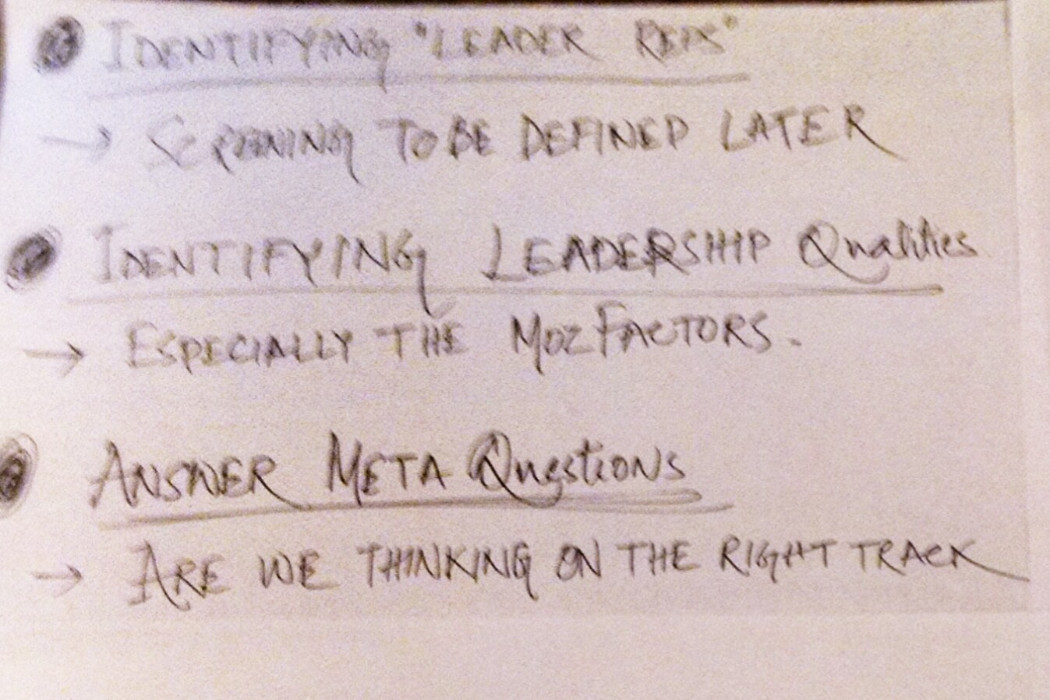 IDENTIFYING "LEADER REPS"
→ SCREENING TO BE DEFINED LATER
IDENTIFYING LEADERSHIP Qualities
→ ESPECIALLY THE MOZFACTORS.
ANSWER META Questions
→ ARE WE THINKING ON THE RIGHT TRACK